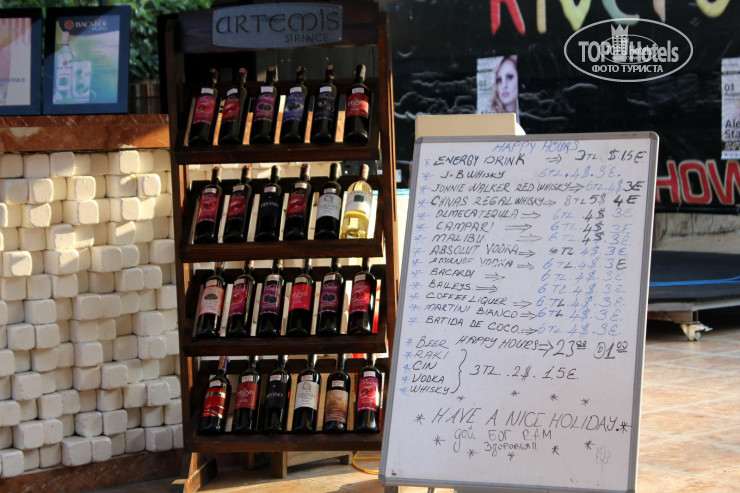 BACARDI
ARTEMIS
ŞİRİNCE
RIVER
TOP Hotels
ФОТО ТУРИСТА
03
Ale
Sta
HOW
HAPPY HOURS
* ENERGY DRINK ⇒ 3TL $.15E
* J.B WHISKY 6TL.4$.3E.
* JONNIE WALKER RED WHISKY⇒6TL.4$ 3E
* CHVAS REGAL WHISKY⇒8TL5$ 4E
* OLMECATEQUILA ⇒ 6TL 4$ 3E
* CAMPARI ⇒ 6TL 4$ 3E
* MALIBU ⇒ 6TL 4$ 3E
* ABSOLUT VODKA ⇒ 6TL 4$.3E
* SMIRNOF VODKA ⇒ 6TL.4$.3E
* BACARDI ⇒ 6TL 4$.3E
* BAILEYS ⇒ 6TL 4$.3E
* COFFEE LIQUER ⇒ 6TL 4$.3E
* MARTINI BIANCO⇒6TL 4$.3E
* BATIDA DE COCO.⇒6TL 4$.3E
* BEER HAPPY HOURS⇒
* RAKI
* CIN
* VODKA
* WHISKY
3TL .2$ .15E
* HAVE A NICE HOLIDAY. *
* ДОЙ БОГ ВАМ
Здоровья